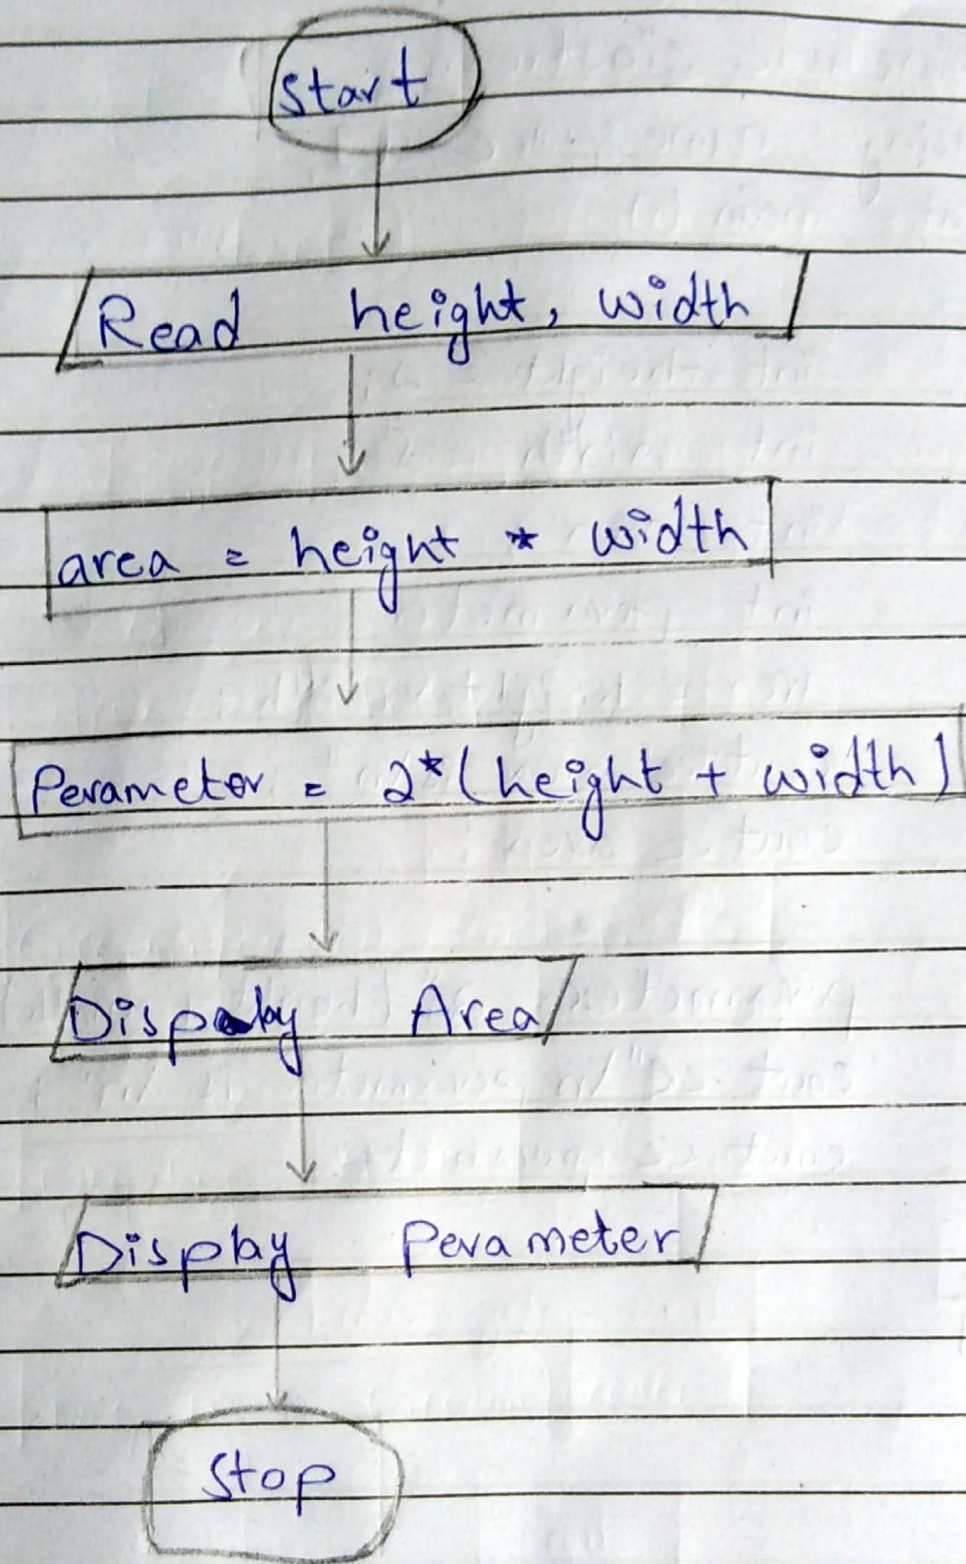 Start
Read height, width
area = height * width
Perameter = 2*(height + width)
Display Area
Display Perameter
Stop